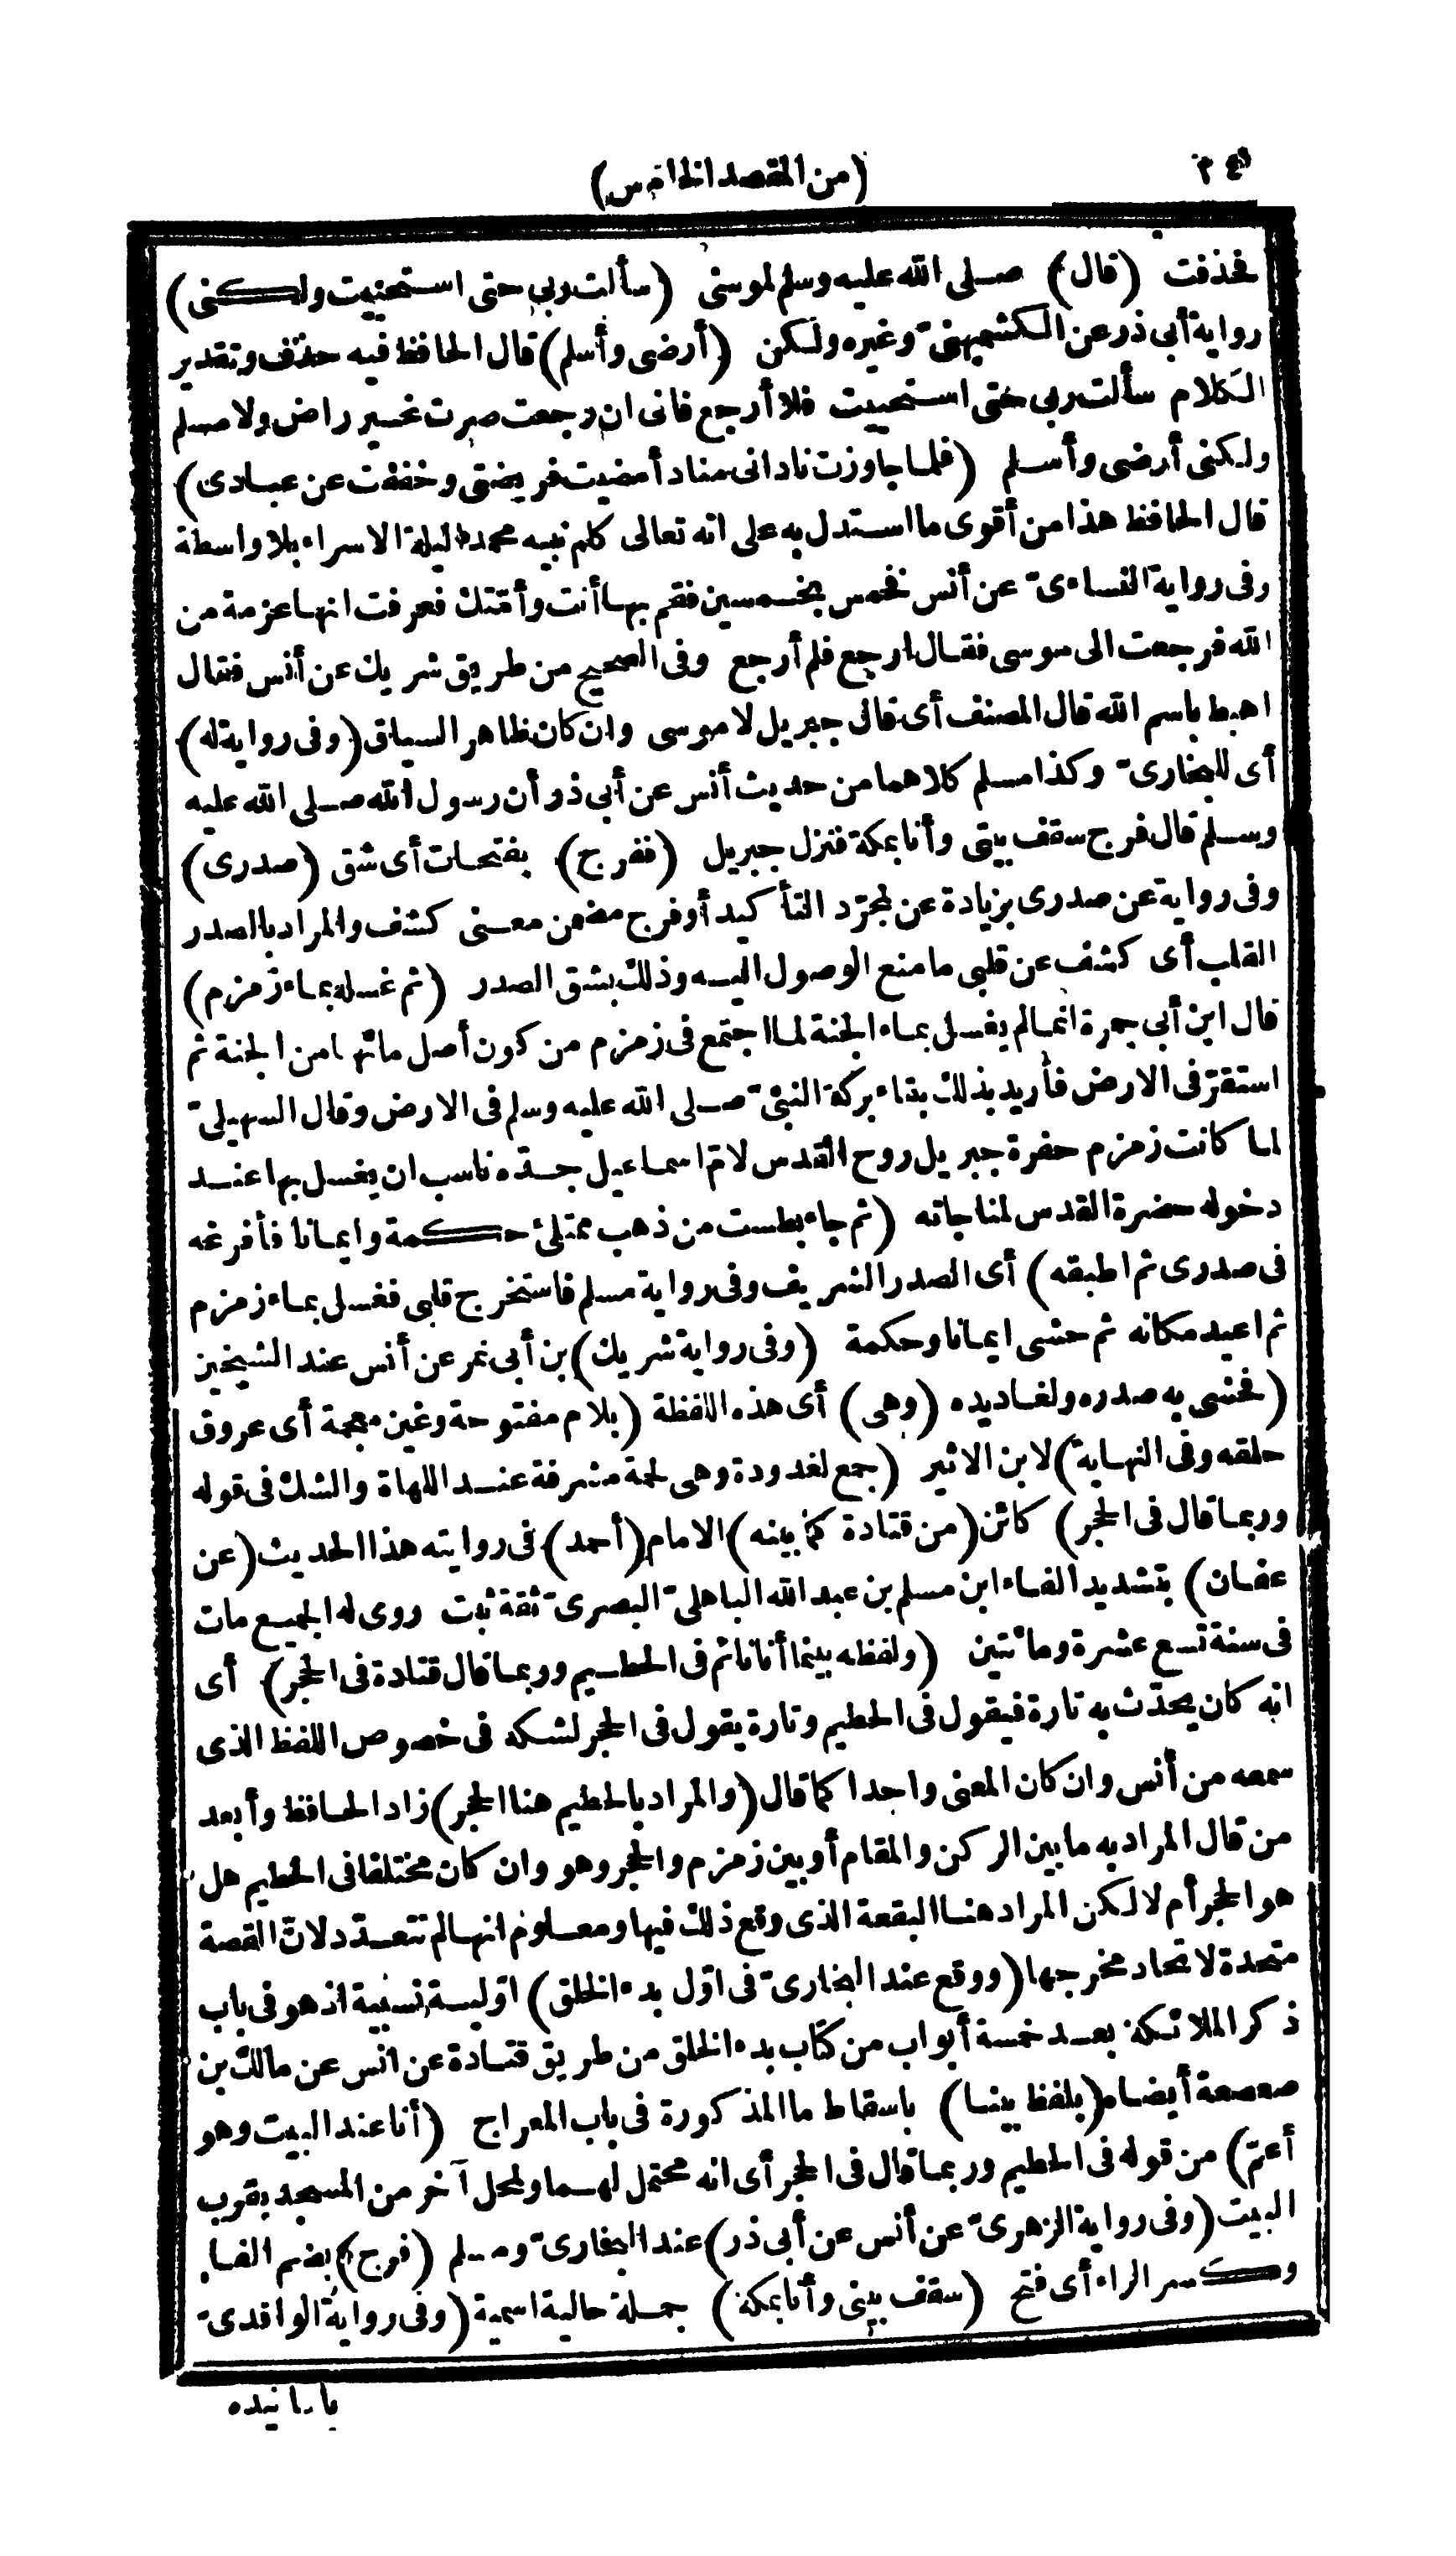 (من المقصد الخامس)
فحذفت (قال) صلى الله عليه وسلم لموسى (سألت ربى حتى استحييت ولكنى)
رواية أبى ذر عن الكشميهنىّ وغيره ولكن (أرضى وأسلم) قال الحافظ فيه حذف وتقدير
الكلام سألت ربى حتى استحييت فلا أرجع فانى ان رجعت صرت غير راض ولا مسلم
ولكنى أرضى وأسلم (فلما جاوزت نادانى مناد أمضيت فريضتى وخففت عن عبادى)
قال الحافظ هذا من أقوى ما استدل به على انه تعالى كلم نبيه محمدا ليلة الاسراء بلا واسطة
وفى رواية النساءىّ عن أنس فخمس بخمسين فقم بها أنت وأمّتك فعرفت انها عزمة من
الله فرجعت الى موسى فقال ارجع فلم أرجع وفى الصحيح من طريق شريك عن أنس فقال
اهبط باسم الله قال المصنف أى قال جبريل لا موسى وان كان ظاهر السياق (وفى رواية له)
أى للبخارىّ وكذا مسلم كلاهما من حديث أنس عن أبى ذر أن رسول الله صلى الله عليه
وسلم قال فرج سقف بيتى وأنا بمكة فنزل جبريل (ففرج) بفتحات أى شق (صدرى)
وفى رواية عن صدرى بزيادة عن لمجرّد التأكيد أو فرج مضمن معنى كشف والمراد بالصدر
القلب أى كشف عن قلبى ما منع الوصول اليه وذلك بشق الصدر (ثم غسله بماء زمزم)
قال ابن أبى جمرة انما لم يغسل بماء الجنة لما اجتمع فى زمزم من كون أصل مائها من الجنة ثم
استقرّ فى الارض فأريد بذلك بقاء بركة النبىّ صلى الله عليه وسلم فى الارض وقال السهيلىّ
لما كانت زمزم حفرة جبريل روح القدس لامّ اسماعيل جدّه ناسب ان يغسل بها عند
دخوله حضرة القدس لمناجاته (ثم جاء بطست من ذهب ممتلئ حكمة وايمانا فأفرغه
فى صدرى ثم اطبقه) أى الصدر الشريف وفى رواية مسلم فاستخرج قلبى فغسل بماء زمزم
ثم اعيد مكانه ثم حشى ايمانا وحكمة (وفى رواية شريك) بن أبى نمر عن أنس عند الشيخين
(فحشى به صدره ولغاديده (وهى) أى هذه اللفظة (بلام مفتوحة وغين معجمة أى عروق
حلقه وفى النهاية) لابن الاثير (جمع لغدودة وهى لحمة مشرفة عند اللهاة والشك فى قوله
وربما قال فى الحجر) كائن (من قتادة كما بينه) الامام (أحمد) فى روايته هذا الحديث (عن
عفان) بتشديد الفاء ابن مسلم بن عبد الله الباهلىّ البصرىّ ثقة ثبت روى له الجميع مات
فى سنة تسع عشرة ومائتين (ولفظه بينما أنا نائم فى الحطيم وربما قال قتادة فى الحجر) أى
انه كان يحدّث به تارة فيقول فى الحطيم وتارة يقول فى الحجر لشكه فى خصوص اللفظ الذى
سمعه من أنس وان كان المعنى واحدا كما قال (والمراد بالحطيم هنا الحجر) زاد الحافظ وأبعد
من قال المراد به ما بين الركن والمقام أو بين زمزم والحجر وهو وان كان مختلفا فى الحطيم هل
هو الحجر أم لا لكن المراد هنا البقعة الذى وقع ذلك فيها ومعلوم انها لم تتعدّد لانّ القصة
متحدة لاتحاد مخرجها (ووقع عند البخارىّ فى اوّل بدء الخلق) اوّلية نسبية اذ هو فى باب
ذكر الملائكة بعد خمسة أبواب من كتاب بدء الخلق من طريق قتادة عن انس عن مالك بن
صعصعة أيضا (بلفظ بينا) باسقاط ما المذكورة فى باب المعراج (أنا عند البيت وهو
أعمّ) من قوله فى الحطيم وربما قال فى الحجر أى انه محتمل لهما ولمحل آخر من المسجد بقرب
البيت (وفى رواية الزهرىّ عن أنس عن أبى ذر) عند البخارىّ ومسلم (فرج) بضم الفاء
وكسر الراء أى فتح (سقف بيتى وأنا بمكة) جملة حالية اسمية (وفى رواية الواقدىّ
باسانيده